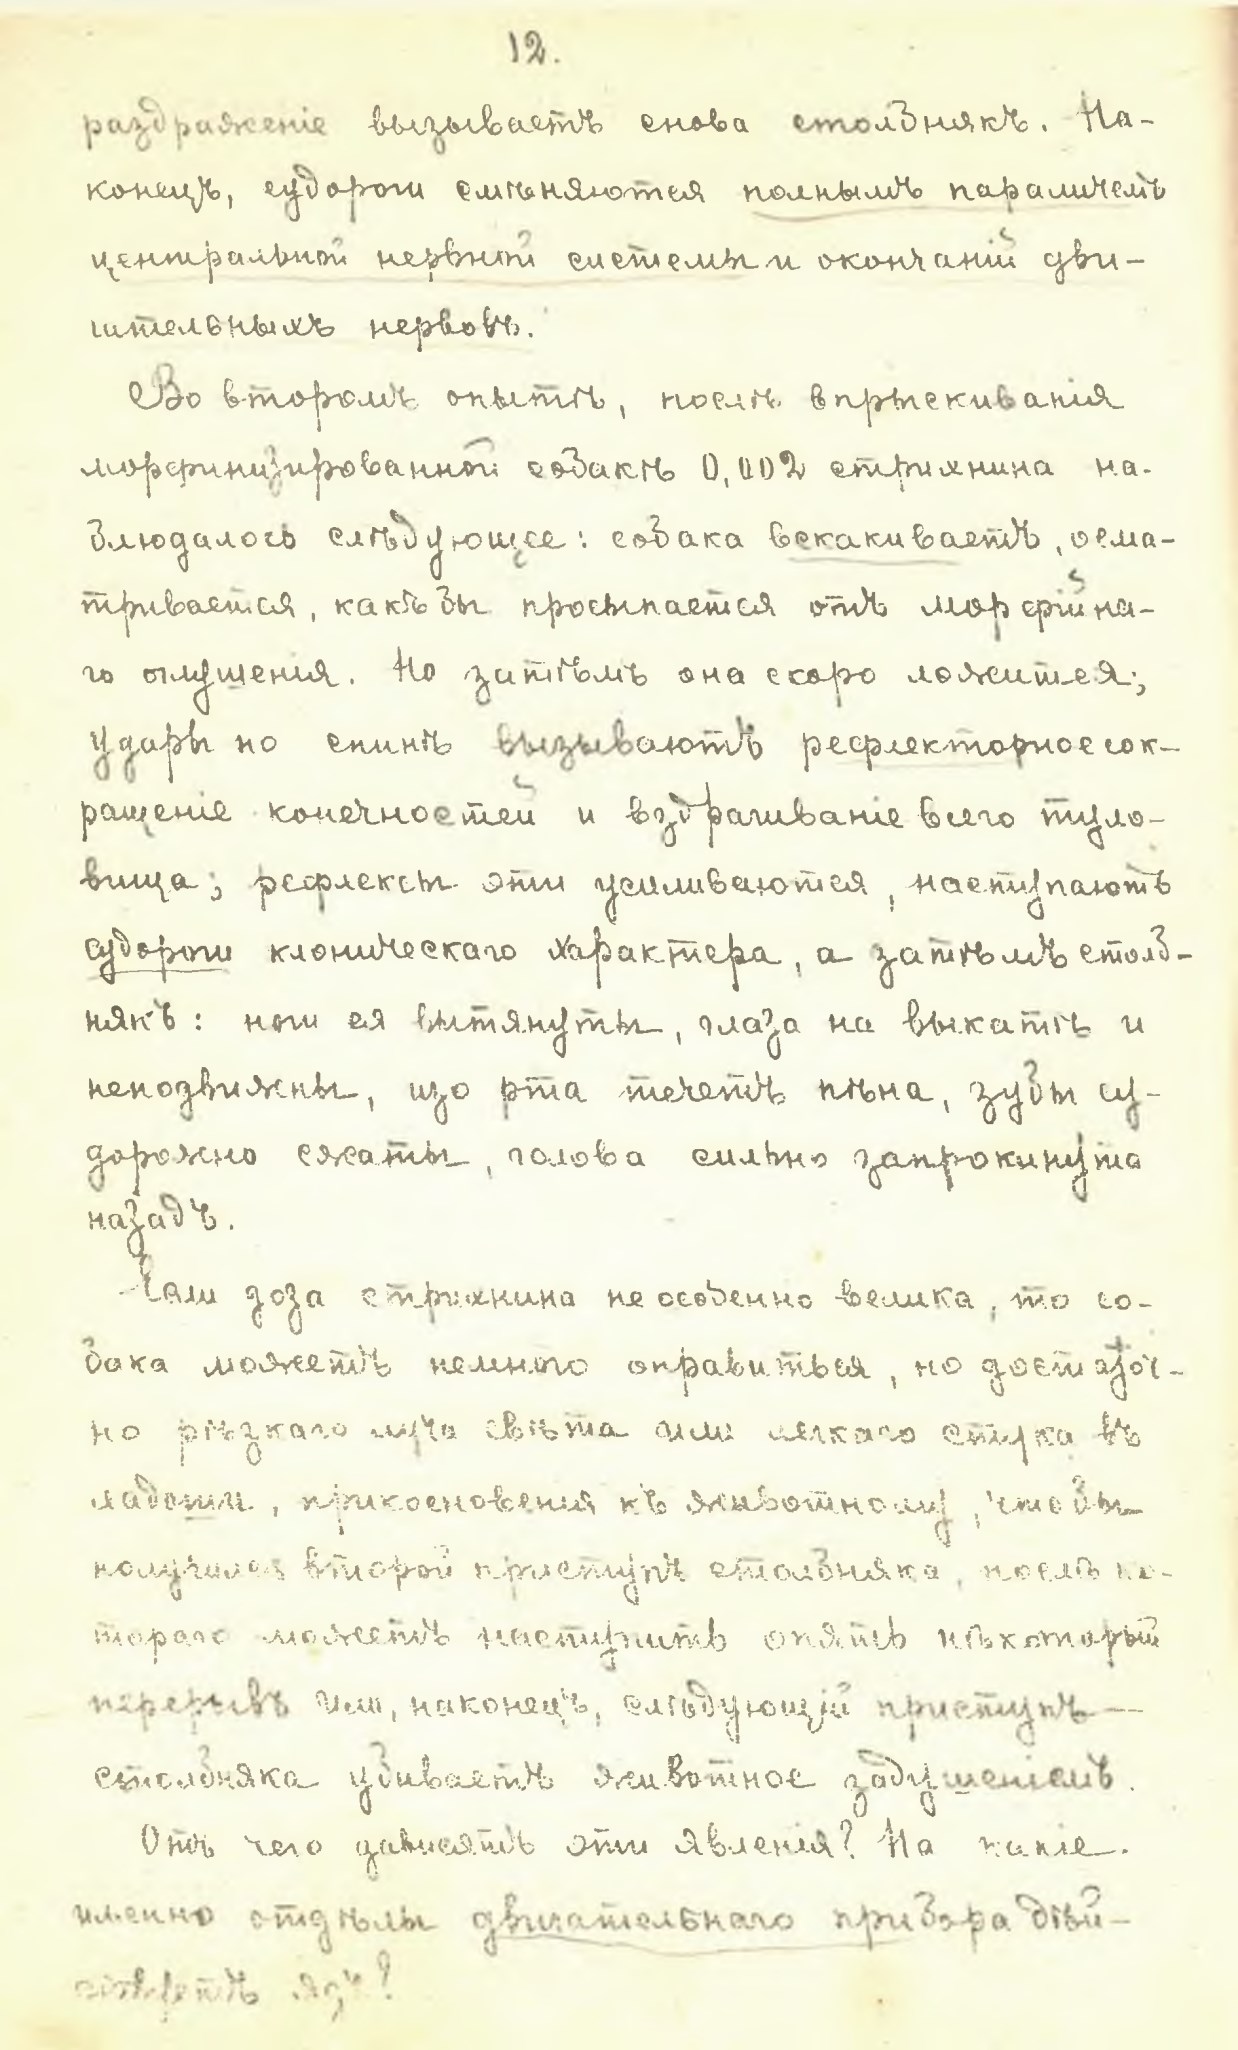 12.
раздраженіе вызываетъ снова столбнякъ. На-
конецъ, судороги смѣняются полнымъ параличемъ
центральной нервной системы и окончаній дви-
гательныхъ нервовъ.
Во второмъ опытѣ, послѣ впрыскиванія
морфинизированной собакѣ 0,002 стрихнина на-
блюдалось слѣдующее: собака вскакиваетъ, осма-
тривается, какъ бы просыпается отъ морфійна-
го оглушенія. Но затѣмъ она скоро ложится;
удары по спинѣ вызываютъ рефлекторное сок-
ращеніе конечностей и вздрагиваніе всего туло-
вища; рефлексы эти усиливаются, наступаютъ
судороги клоническаго характера, а затѣмъ столб-
някъ: ноги ея вытянуты, глаза на выкатѣ и
неподвижны, изо рта течетъ пѣна, зубы су-
дорожно сжаты, голова сильно запрокинута
назадъ.
Если доза стрихнина не особенно велика, то со-
бака можетъ немного оправиться, но достаточ-
но рѣзкаго луча свѣта или легкаго стука въ
ладоши, прикосновенія къ животному, чтобы
получился второй приступъ столбняка, послѣ ко-
тораго можетъ наступить опять нѣкоторый
перерывъ или, наконецъ, слѣдующій приступъ —
столбняка убиваетъ животное задушеніемъ.
Отъ чего зависятъ эти явленія? На какіе
именно отдѣлы двигательнаго прибора дѣй-
ствуетъ ядъ?